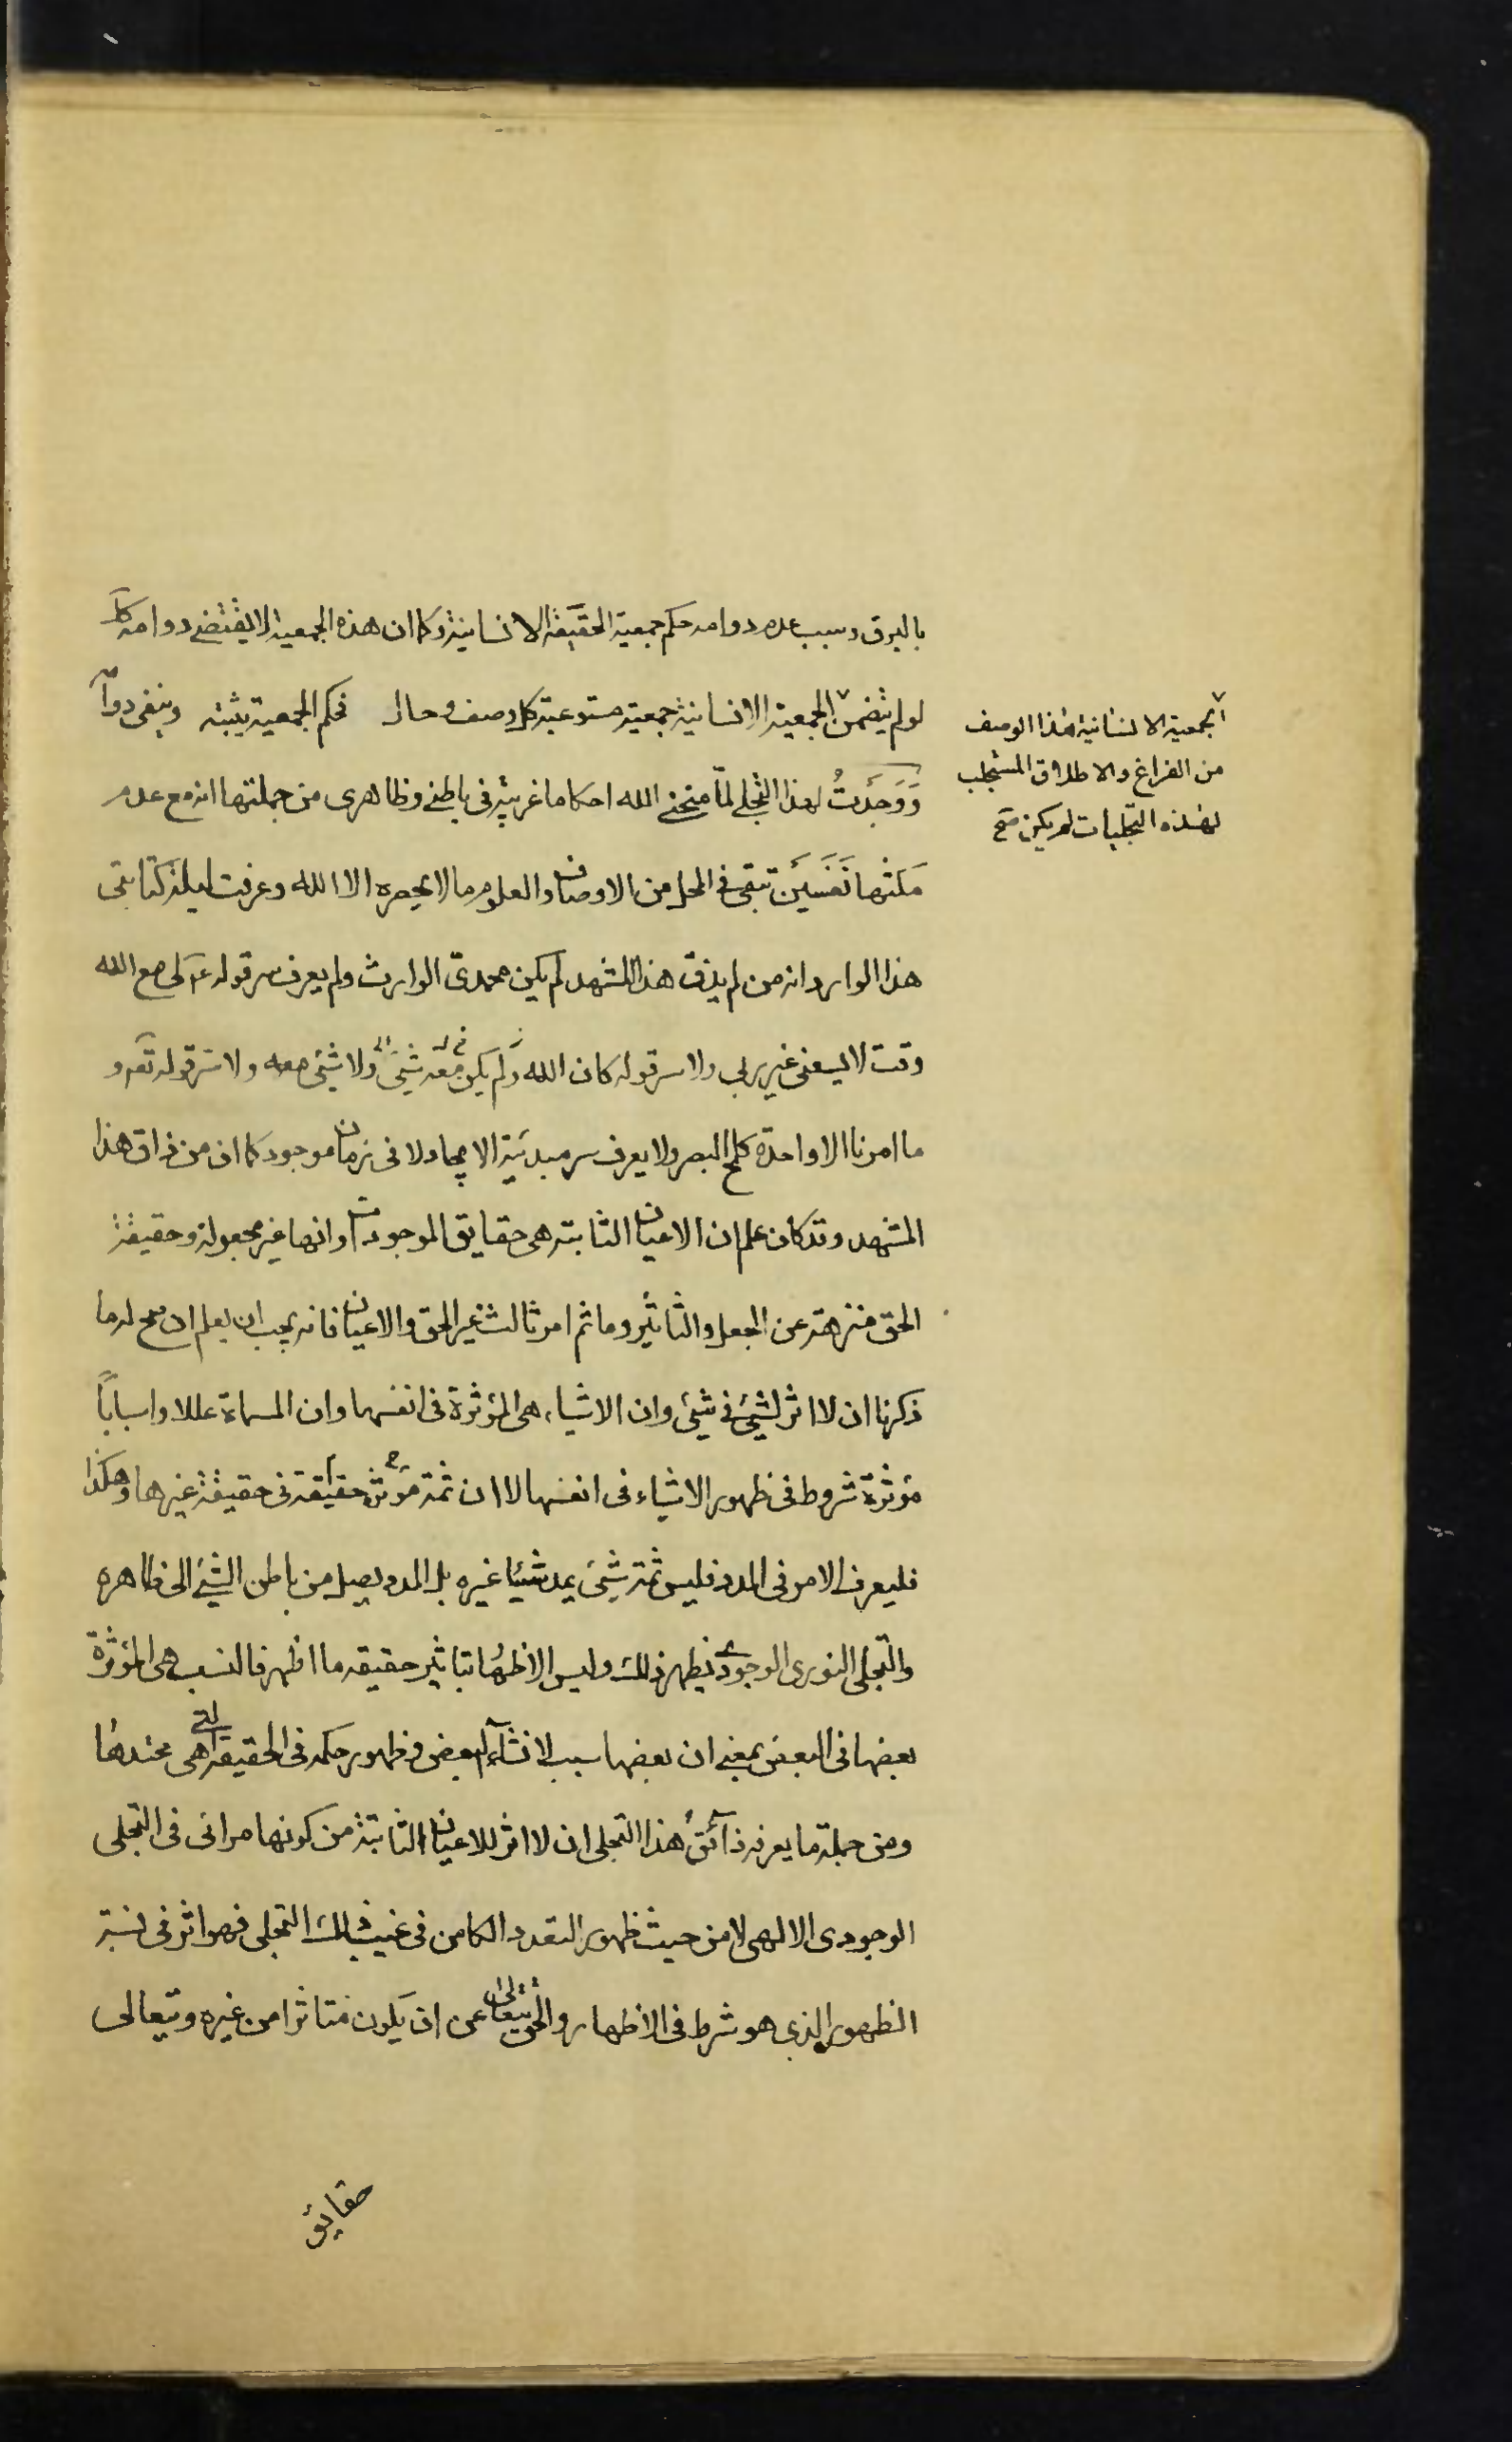 بالبرق وسبب عدم دوامه حكم جمعية الحقيقة الانسانية وكما ان هذه الجمعية لا يقتضى دوامه كك
لو لم يتضمن الجمعية الانسانية جمعية مستوعبة كل وصف وحال فحكم الجمعية يثبته وينفى دوامه
الجمعية الانسانية هذا الوصف
من الفراغ والاطلاق المستجلب
لهذه التجليات لم يكن
وَوَجَدتُ لهذا التجلى لمّا منحنى الله احكاما غريبة فى باطنى وظاهرى من جملتها انه مع عدم
مكثها نَفَسَين تبقى فى المحل من الاوصاف والعلوم ما لا يحصره الا الله وعرفت ليلة كتابتى
هذا الوارد انه من لم يذق هذا المشهد لم يكن محمدىّ الوارث ولم يعرف سر قوله عم لى مع الله
وقت لا يسعنى غير ربى ولا سر قوله كان الله ولم يكن معه شئ ولا شئ معه ولا سر قوله تعم و
ما امرنا الا واحدة كلمح البصر ولا يعرف سر مبدئية الايجاد لا فى زمان موجود كما ان من ذاق هذا
المشهد وقد كان علم ان الاعيان الثابتة هى حقايق الموجودات وانها غير مجعولة وحقيقة
الحق منزهة عن الجعل والتأثير وما ثم امر ثالث غير الحق والاعيان فانه يجب ان يعلم ان صح له ما
ذكرنا ان لا اثر لشئ فى شئ وان الاشياء هى المؤثرة فى انفسها وان المسماة عللا واسبابًا
مؤثرة شروط فى ظهور الاشياء فى انفسها لا ان ثمة مؤثر حقيقة فى حقيقة غيرها وهكذا
فليعرف الامر فى المدد فليس ثمة شئ يمد شيئا غيره بل المدد يصل من باطن الشئ الى ظاهره
والتجلى النورى الوجودى يظهر ذلك وليس الاظهار بتاثير حقيقة ما اظهر فالنسب هى المؤثرة
بعضها فى البعض بمعنى ان بعضها سبب لانتشاء البعض وظهور حكمه فى الحقيقة التى هى محتدها
ومن جملة ما يعرفه ذائق هذا التجلى ان لا اثر للاعيان الثابتة من كونها مرائى فى التجلى
الوجودى الالهى الا من حيث ظهور التعدد الكامن فى غيب ذلك التجلى فهو اثر فى نسبة
الظهور الذى هو شرط فى الاظهار والحق يتعالى عن ان يكون متاثرا من غيره وتتعالى
حقايق